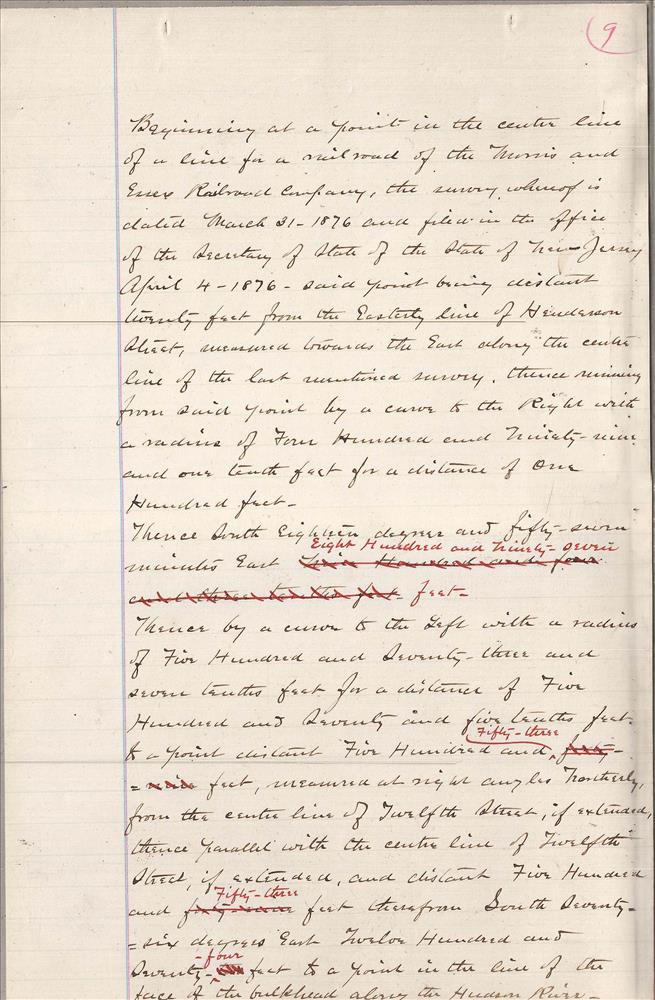 9
Beginning at a point in the centre line
of a line for a railroad of the Morris and
Essex Railroad Company, the survey whereof is
dated March 31 - 1876 and filed in the office
of the Secretary of State of the State of New Jersey
April 4 - 1876 - said point being distant
twenty feet from the Easterly line of Henderson
Street, measured towards the East along the centre
line of the last mentioned survey. thence running
from said point by a curve to the Right with
a radius of Four Hundred and Ninety-nine
and one tenth feet for a distance of One
Hundred feet -
Thence South Eighteen degrees and fifty-seven
Eight Hundred and Ninety-seven
minutes East Hundred and four
and three tenths feet feet -
Thence by a curve to the Left with a radius
of Five Hundred and Seventy-three and
seven tenths feet for a distance of Five
Hundred and Seventy and five tenths feet
Fifty-three
to a point distant Five Hundred and forty-
= nine feet, measured at right angles Northerly,
from the centre line of Twelfth Street, if extended,
thence parallel with the centre line of Twelfth
Street, if extended, and distant Five Hundred
Fifty-three
and forty-nine feet therefrom South Seventy-
= six degrees East Twelve Hundred and
-four
Seventy- feet to a point in the line of the
face of the bulkhead along the Hudson River -